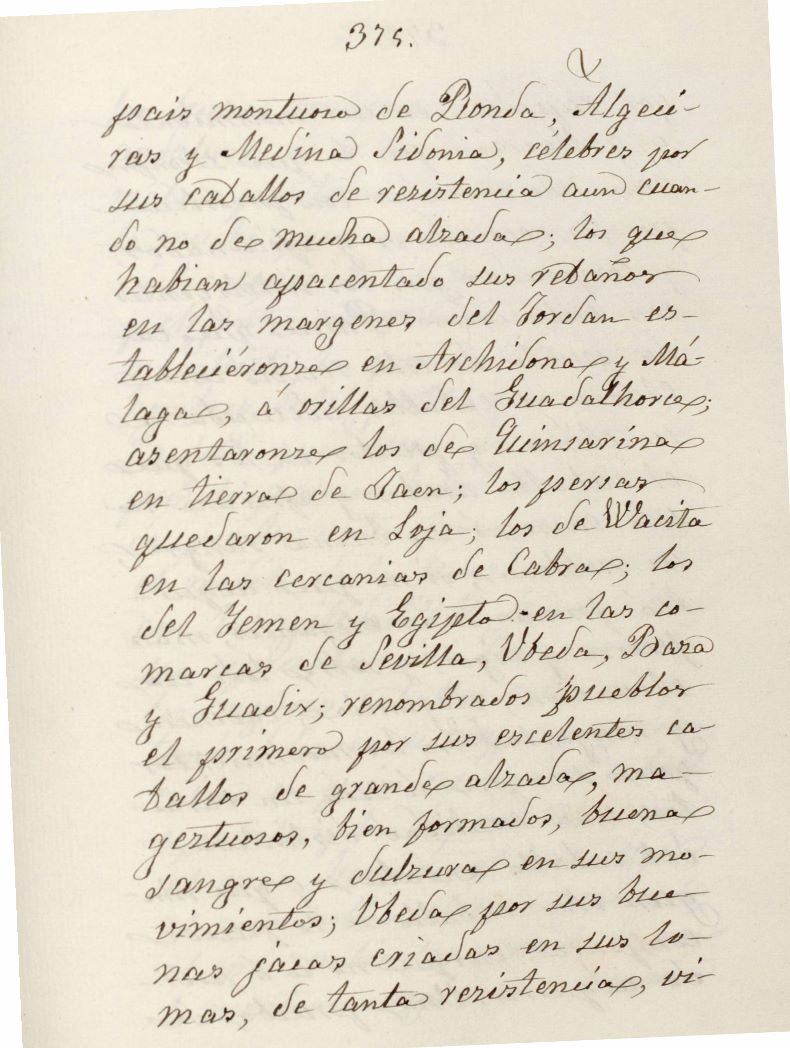 375.
pais montuoso de Ronda, Algeci-
ras y Medina Sidonia, célebres por
sus caballos de resistencia aun cuan-
do no de mucha alzada; los que
habian apacentado sus rebaños
en las margenes del Jordan es-
tableciéronse en Archidona y Má-
laga, á orillas del Guadalhorce;
asentaronse los de Quinsarina
en tierra de Jaen; los persas
quedaron en Loja; los de Wacita
en las cercanias de Cabra; los
del Yemen y Egipto en las co-
marcas de Sevilla, Ubeda, Baza
y Guadix; renombrados pueblos
el primero por sus escelentes ca-
ballos de grande alzada, ma-
gestuosos, bien formados, buena
sangre y dulzura en sus mo-
vimientos; Ubeda por sus bue-
nas jácas criadas en sus lo-
mas, de tanta resistencia, vi-